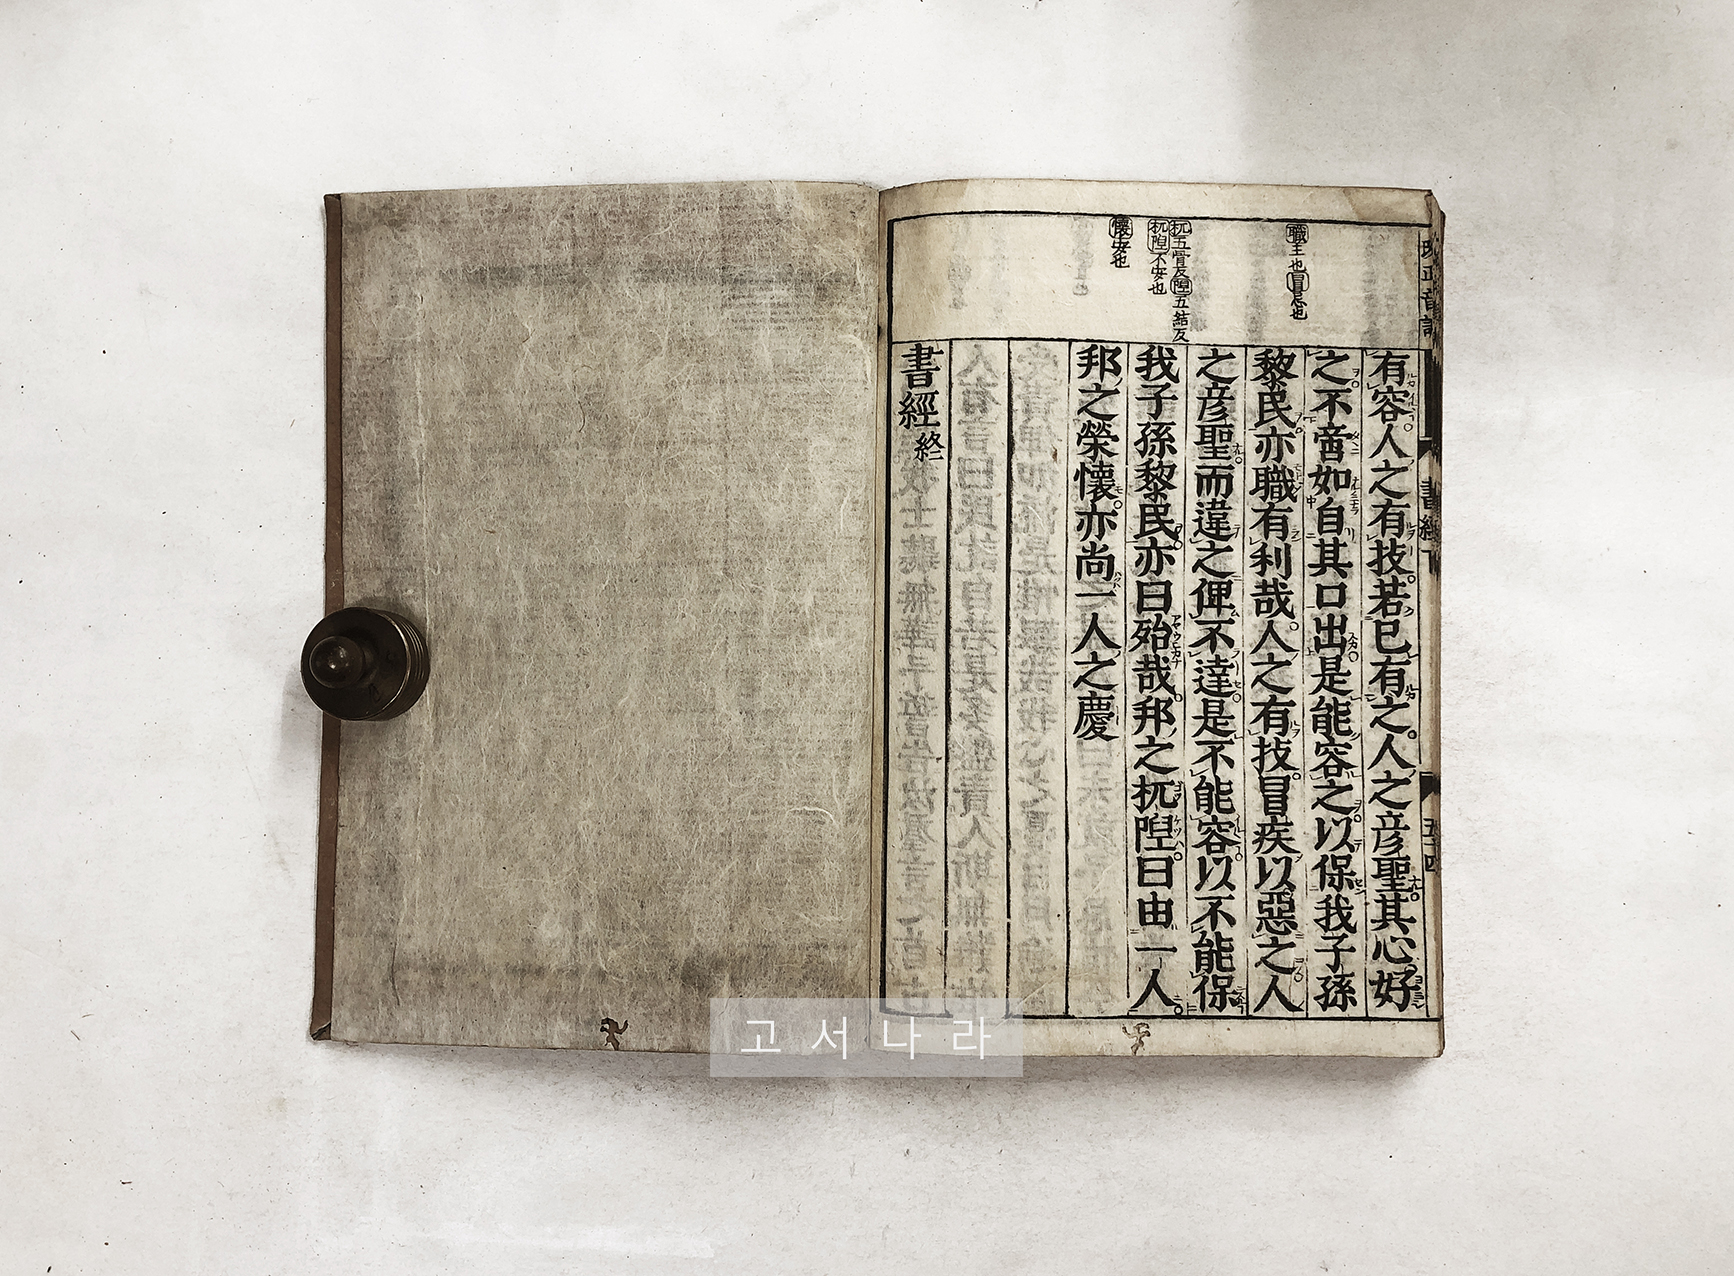 職主也冒忌也
杌五骨反隉五結反
杌隉不安也
懷安也
有容人之有技若已有之人之彦聖其心好
之不啻如自其口出是能容之以保我子孫
黎民亦職有利哉人之有技冒疾以惡之人
之彦聖而違之俾不達是不能容以不能保
我子孫黎民亦曰殆哉邦之杌隉曰由一人
邦之榮懷亦尚一人之慶
書經終
書經下
五十四
고서나라